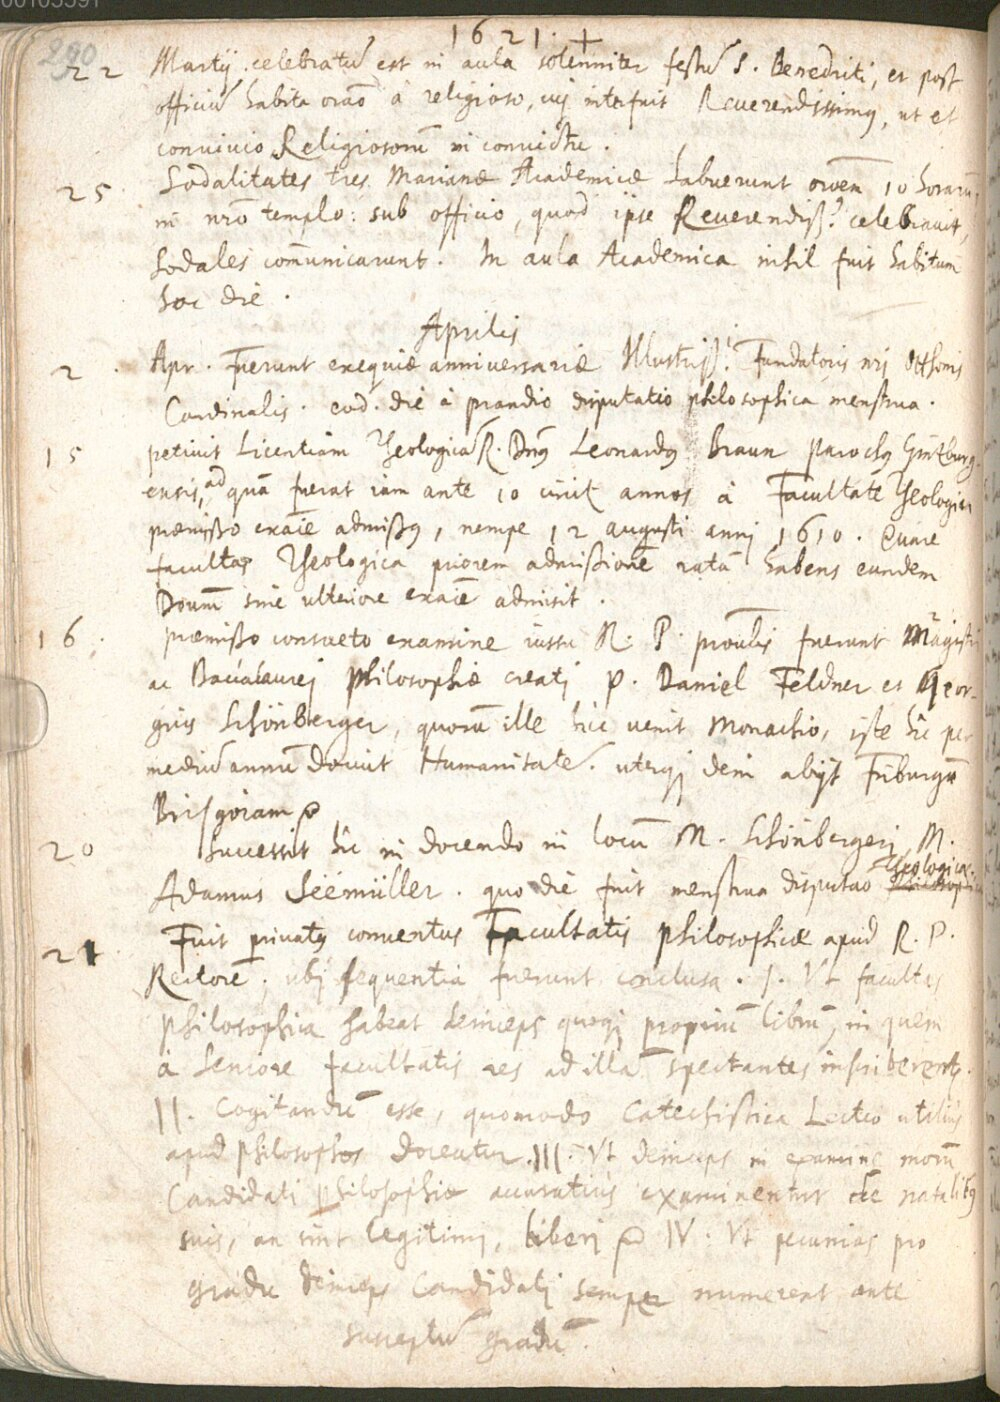 00105591
290
1621. +
22 Martij celebratū est in aula solenniter festū S. Benedicti, et post
officiū habita oraō à religioso, cuj interfuit Reuerendissimq, ut et
conuiuio Religiosorū in conuictu.
25 Sodalitates tres Marianæ Academicæ habuerunt orōem 10 horarū,
in nrō templo: sub officio, quod ipse Reuerendiß: celebrauit,
Sodales com̄unicarunt. In aula Academica nihil fuit habitum
hoc die.
Aprilis
2. Apr. Fuerunt exequiæ anniuersariæ Illustriß. Fundatoris nrj Otthonis
Cardinalis. eod. die à prandio disputatio philosophica menstrua.
15 petiuit Licentiam Theologicā R. Dnq Leonardq Braun parochq Gintzburg-
ensis, ad quā fuerat iam ante 10 circit annos à Facultate Theologica
præmißo exaīe admißq, nempe 12 augusti annj 1610. Quare
facultas Theologica priorem admißionē ratā habens eundem
Doum̄ sine ulteriore exaīe admisit.
16. præmißo consueto examine iussu R. P. prouīlis fuerunt Magistri
ac Baccalaurej philosophiæ creatj P. Daniel Feldner et Geor-
gius Schönberger, quorū ille hic uenit Monachio, iste hic per
mediū annū docuit Humanitatē. uterqj dein abijt Friburgū
Brisgoiam
20 Successit hic in docendo in locū M. Schönbergerj M.
Adamus Seemüller. quo die fuit menstrua disputao Theologica.
24. Fuit priuatq conuentus Facultatis philosophicæ apud R. P.
Rectorē, ubj sequentia fuerunt conclusa. I. Vt facultas
philosophica habeat deinceps quoqj propriū librū, in quem
à Seniore facultatis res ad illā spectantes inscriberentr.
II. Cogitandū esse, quomodo Catechistica Lectio utilius
apud philosophos doceatur. III. Vt deinceps in examine morū
Candidati philosophiæ accuratius examinentur de natalibq
suis, an sint legitimj, liberj IV. Vt pecunias pro
gradu deinceps Candidatj semper numerent ante
susceptū gradū.